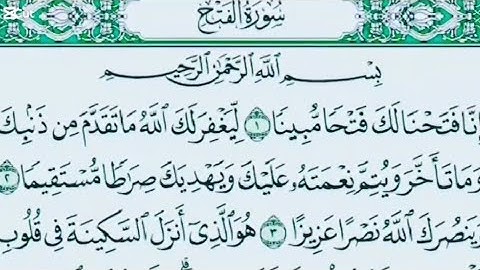 سُورَةُ الْفَتْحِ
بِسْمِ اللَّهِ الرَّحْمَٰنِ الرَّحِيمِ
إِنَّا فَتَحْنَا لَكَ فَتْحًا مُّبِينًا ١ لِّيَغْفِرَ لَكَ اللَّهُ مَا تَقَدَّمَ مِن ذَنۢبِكَ
وَمَا تَأَخَّرَ وَيُتِمَّ نِعْمَتَهُۥ عَلَيْكَ وَيَهْدِيَكَ صِرَٰطًا مُّسْتَقِيمًا ٢
وَيَنصُرَكَ اللَّهُ نَصْرًا عَزِيزًا ٣ هُوَ الَّذِىٓ أَنزَلَ السَّكِينَةَ فِى قُلُوبِ